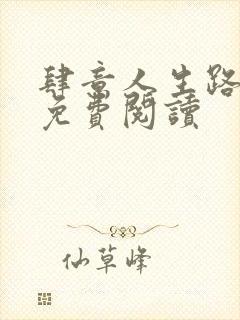 肆意人生路
免費閱讀
仙草峰